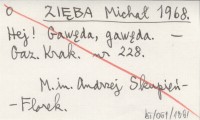 o ZIĘBA Michał 1968.
Hej! Gawęda, gawęda. —
Gaz. Krak. nr 228.
M. in. Andrzej Skupień-
-Florek.